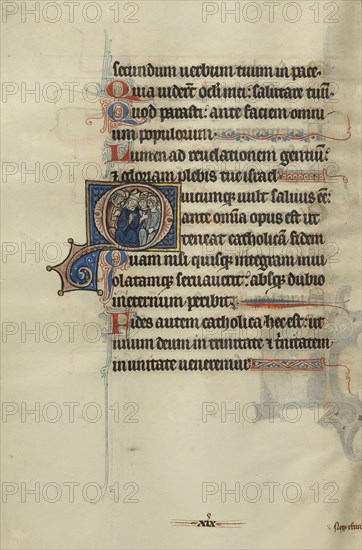 secundum uerbum tuum in pace.
Quia uiderunt oculi mei: salutare tuum.
Quod parasti: ante faciem omni
um populorum.
Lumen ad reuelationem gentium:
& gloriam plebis tue israel.
Quicumque uult saluus esse:
ante omnia opus est ut
teneat catholicam fidem
Quam nisi quisque integram inui
olatamque seruauerit: absque dubio
in eternum peribit.
Fides autem catholica hec est: ut
unum deum in trinitate & trinitatem
in unitate ueneremur.
XIX
PHOTO12